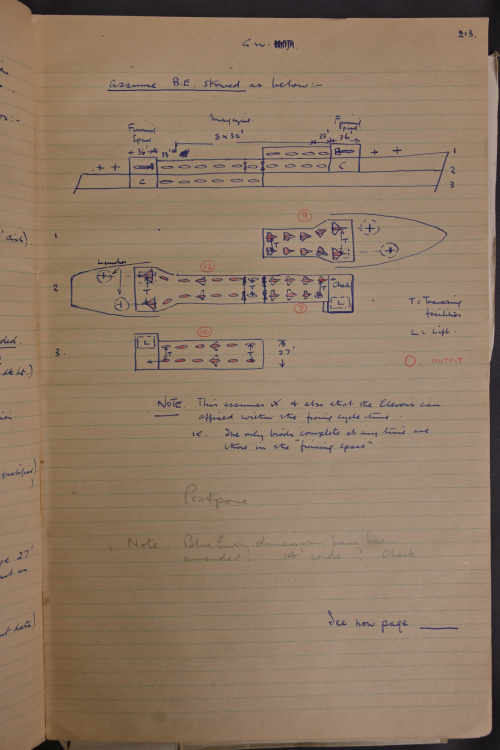 213.
G.W.
Assume B.E. stowed as below:-
Magazine
8 x 33'
Finning
Space
36'
33'
33'
Finning
Space
36'
C
C
1
2
3
1
9
T
T
2
Launcher
12
T
T
T
T
7
Check
L
T = Traversing
facilities
L = Lift.
3.
10
L
T
T
27'
O. OUTFIT
NOTE. This assumes & also that the Elevons can
affixed within the firing cycle time.
i.e. The only birds complete at any time are
those in the "finning space"
Postpone
Note. Blue Envoy dimensions have been
amended. wide? Check
See now page